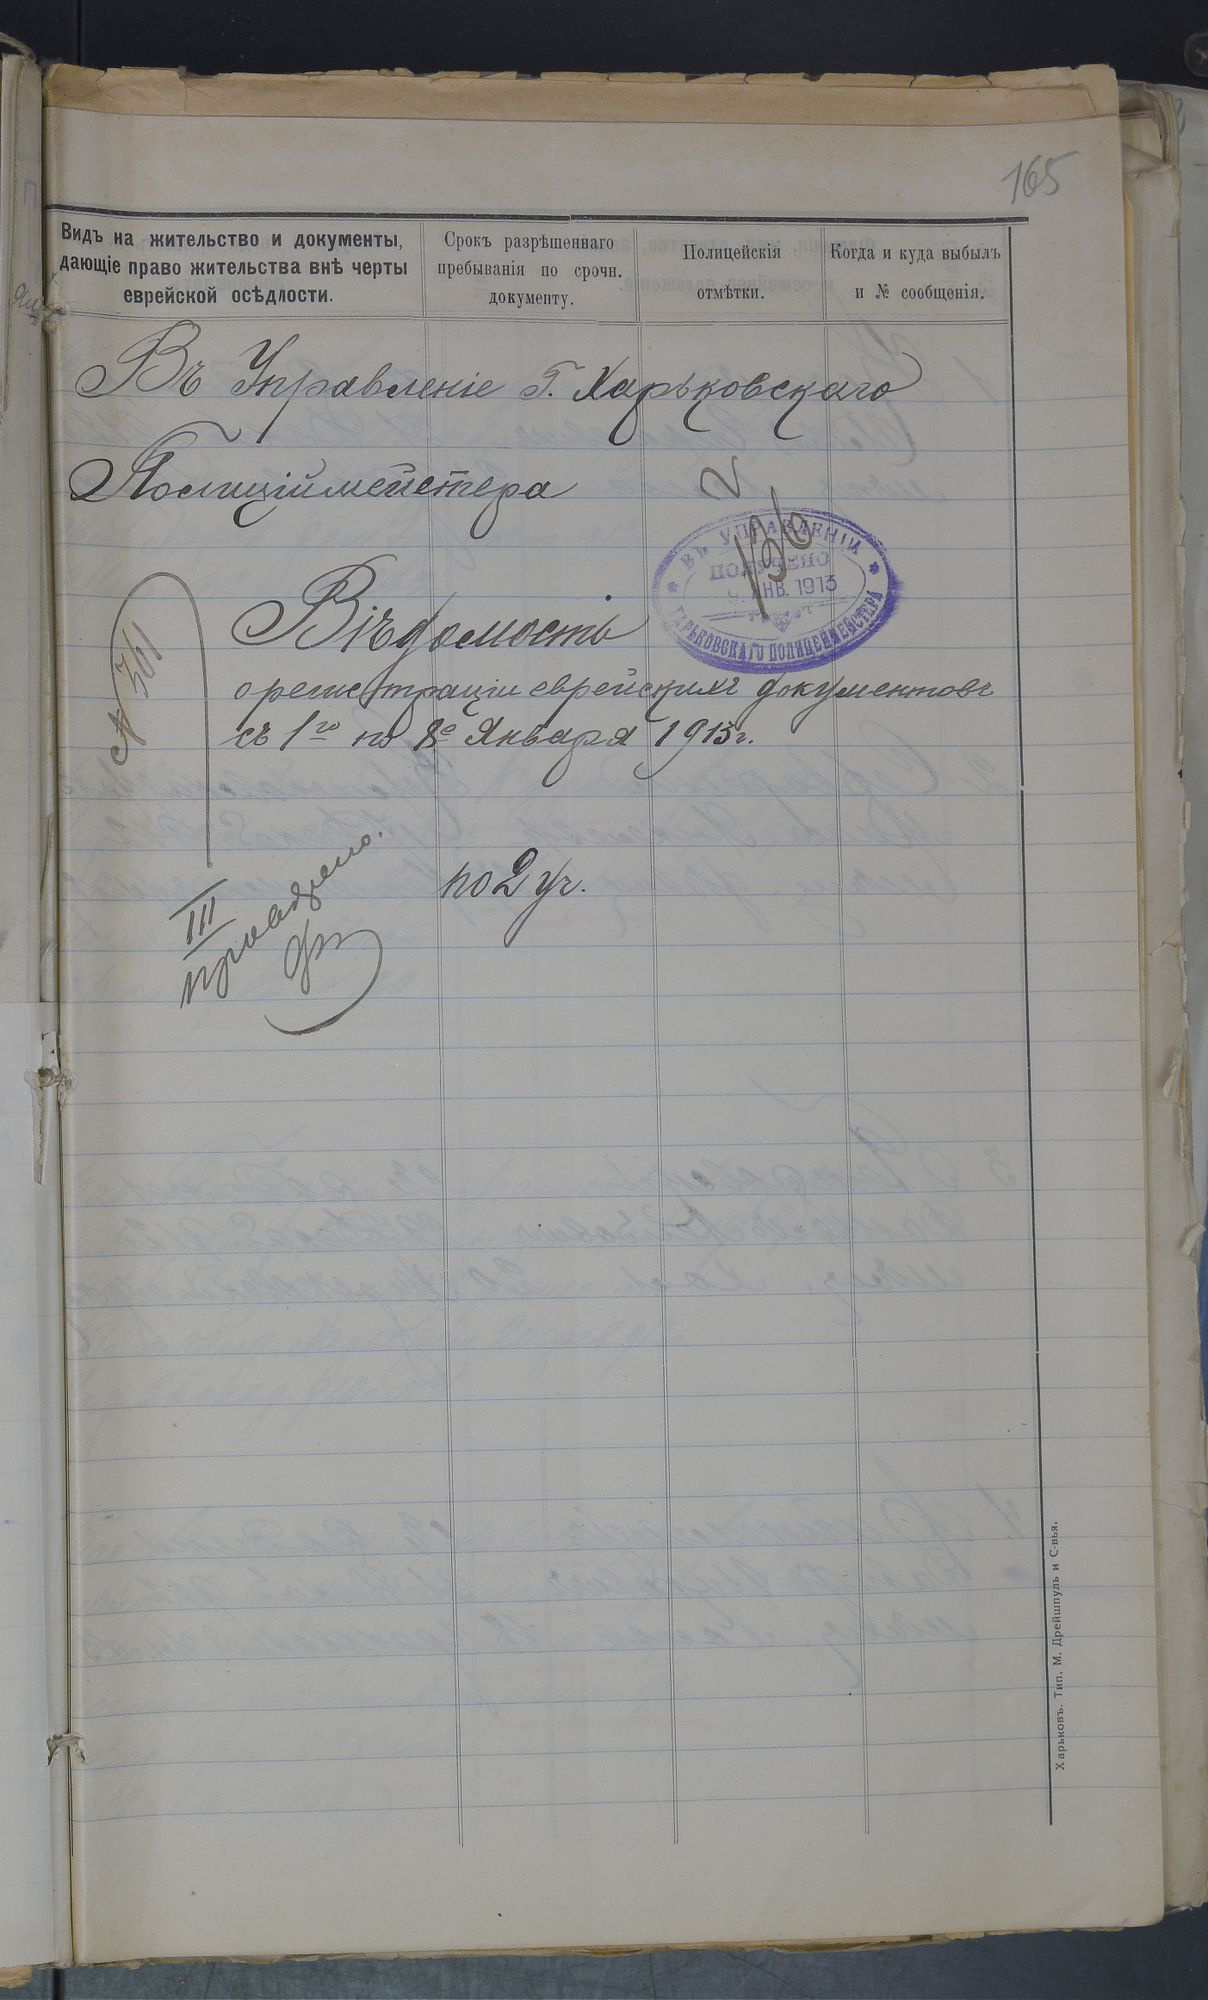 165
Видъ на жительство и документы,
дающіе право жительства внѣ черты
еврейской осѣдлости.
Срокъ разрѣшеннаго
пребыванія по срочн.
документу.
Полицейскія
отмѣтки.
Когда и куда выбылъ
и № сообщенія.
Въ Управленіе Г. Харьковскаго
Полиціймейстера
2
136
ВЪ УПРАВЛЕНІИ
ПОЛУЧЕНО
9. ЯНВ. 1913
ХАРЬКОВСКАГО ПОЛИЦЕЙМЕЙСТЕРА
Вѣдомость
о регистраціи еврейскихъ документовъ
съ 1го по 8е Января 1913г.
№ 361
по 2 уч.
III
провѣрено.
Харьковъ. Тип. М. Дрейшпуль и С-вья.